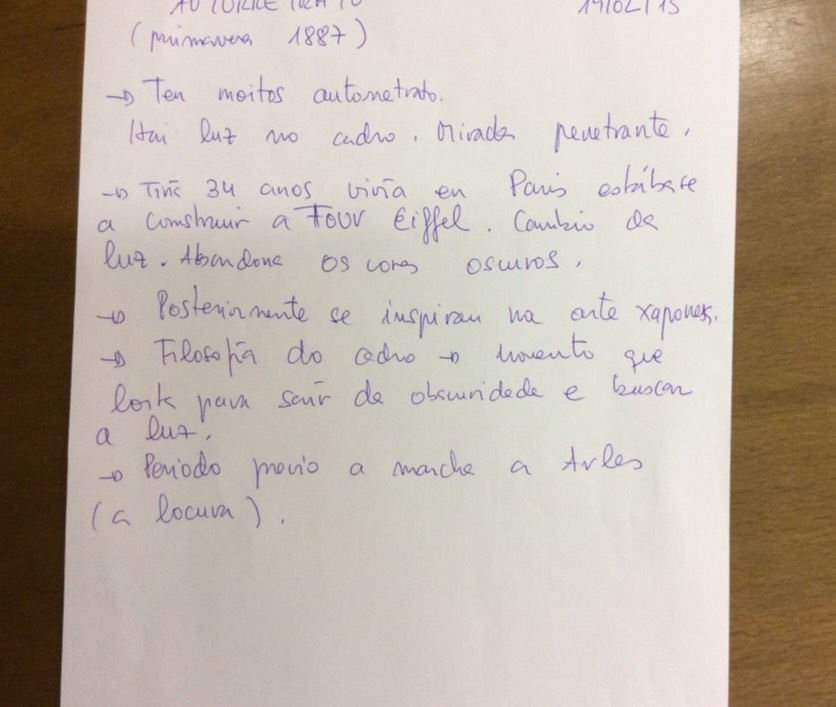 AUTORRETRATO 19/02/15
(primavera 1887)
→ Ten moitos autorretrato.
Hai luz no cadro. Mirada penetrante.
→ Tiña 34 anos vivía en París estábase
a construir a Tour Eiffel. Cambio de
luz. Abandona os cores oscuros.
→ Posteriormente se inspirou na arte xaponesa.
→ Filosofía do cadro → momento que
loita para saír da obscuridade e buscar
a luz.
→ Periodo previo a marcha a Arles
(a locura).